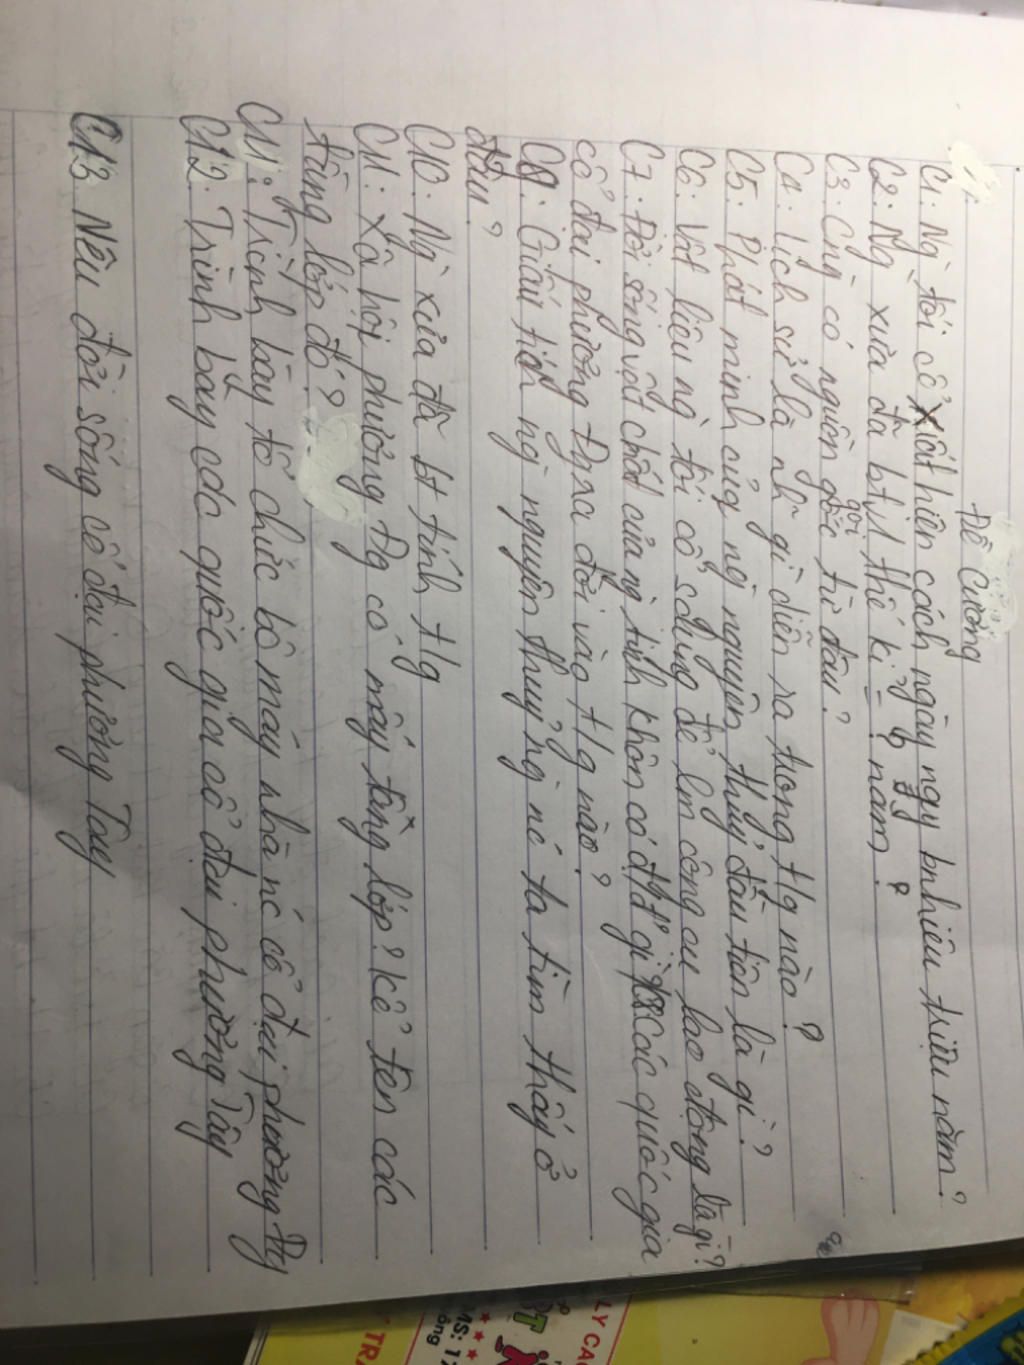 Đề Cương
C1. Ng` tối cổ xiất hiện cách ngày ngy bnhiêu triệu năm?
C2. Ng` xưa đã btil thế kỉ = ? năm?
C3. Cng` có nguồn gốc từ đâu?
C4. Lịch sử là nh~ gì diễn ra trong t/g nào?
C5. Phát minh của ng` nguyên thuỷ đầu tiên là gì?
C6. Vật liệu ng` tối cổ sdụng để lm công cụ lao động là gì?
C7. Đời sống vật chất của ng` tinh khôn có gì Các quốc gia
cổ đại phương Đg ra đời vào t/g nào?
C9. Giấu tích ng` nguyên thuỷ ng` ta tìm thấy ở
đâu?
C10. Ng` xưa đã bt tính t/g
C11. Xã hội phương Đg có mấy tầng lớp? kể tên các
tầng lớp đó?
C11. Trình bày tổ chức bộ máy nhà nc cổ đại phương Đg
C12. Trình bày các quốc gia cổ đại phương Tây
C13. Nêu đời sống cổ đại phương Tây
LY CA
TRA
MS: 1